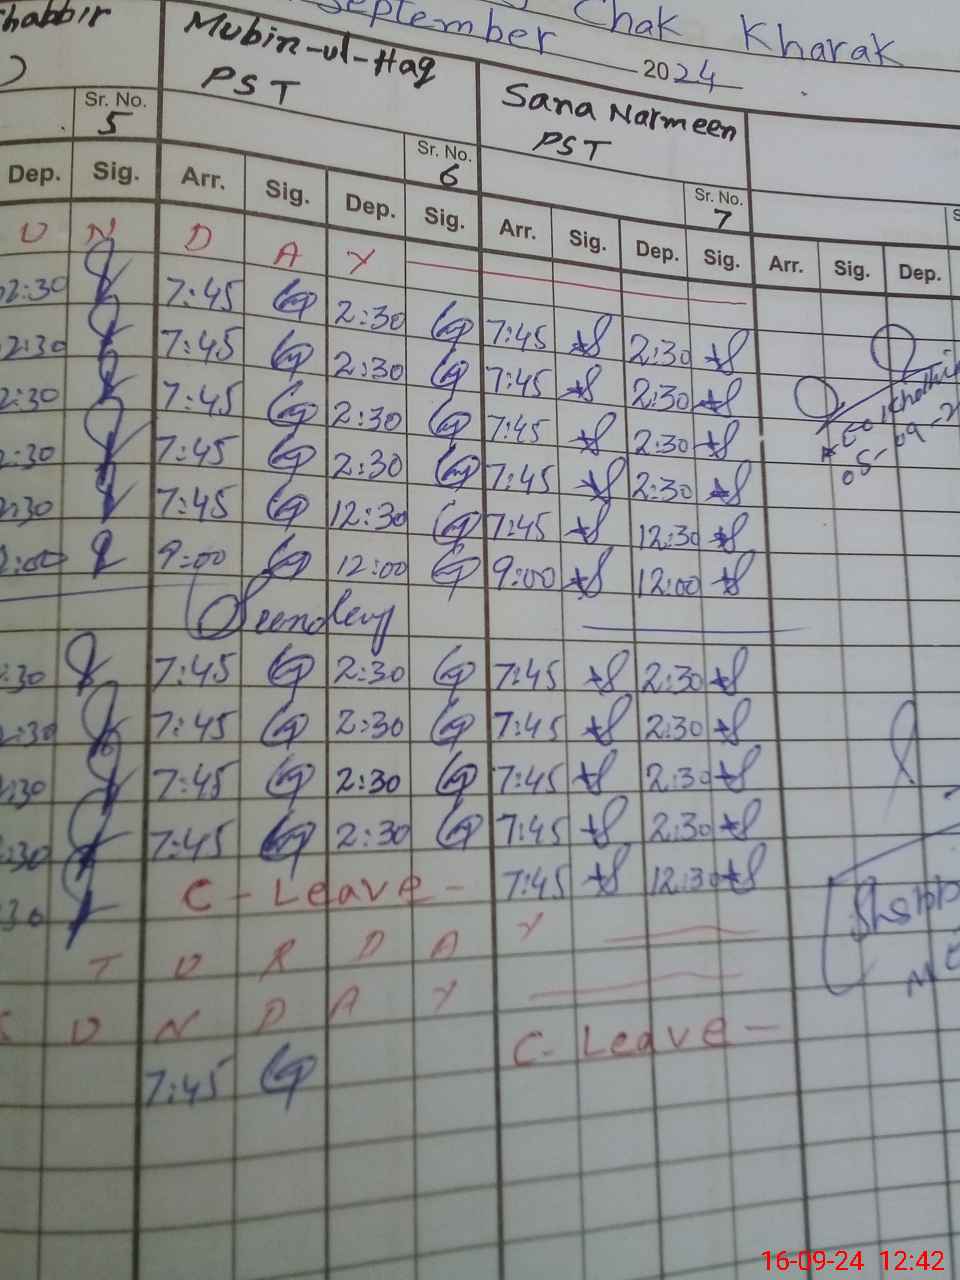 Chak Kharak
September 2024
habbir Mubin-ul-Haq Sana Narmeen
PST PST
Sr. No. 5 Sr. No. 6 Sr. No. 7
Dep. Sig. Arr. Sig. Dep. Sig. Arr. Sig. Dep. Sig. Arr. Sig. Dep.
U N D A Y
2:30 7:45 2:30 7:45 2:30
2:30 7:45 2:30 7:45 2:30
2:30 7:45 2:30 7:45 2:30
2:30 7:45 2:30 7:45 2:30
2:30 7:45 12:30 7:45 12:30
2:00 9:00 12:00 9:00 12:00
:30 7:45 2:30 7:45 2:30
2:30 7:45 2:30 7:45 2:30
2:30 7:45 2:30 7:45 2:30
:30 7:45 2:30 7:45 2:30
:30 C-Leave- 7:45 12:30
T U R D A Y
U N D A Y
7:45 C-Leave-
16-09-24 12:42